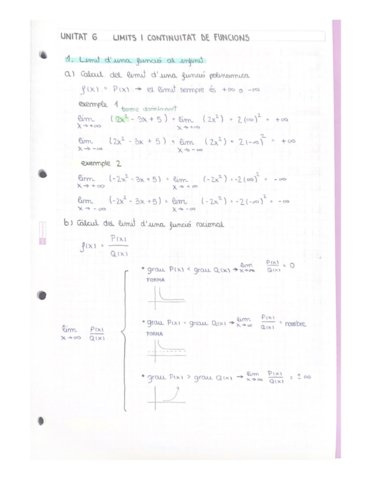 UNITAT 6 LIMITS I CONTINUITAT DE FUNCIONS
1. Limit d'una funció al infinit
a) Càlcul del limit d'una funció polinòmica
f(x) = P(x) → el limit sempre és +∞ o -∞
exemple 1 terme dominant
lim x→+∞ (2x² - 3x + 5) = lim x→+∞ (2x²) = 2(∞)² = +∞
lim x→-∞ (2x² - 3x + 5) = lim x→-∞ (2x²) = 2(-∞)² = +∞
exemple 2
lim x→+∞ (-2x² - 3x + 5) = lim x→+∞ (-2x²) = -2(∞)² = -∞
lim x→-∞ (-2x² - 3x + 5) = lim x→-∞ (-2x²) = -2(-∞)² = -∞
b) Càlcul del limit d'una funció racional
f(x) = P(x)/Q(x)
lim x→∞ P(x)/Q(x)
• grau P(x) < grau Q(x) → lim x→∞ P(x)/Q(x) = 0
FORMA
• grau P(x) = grau Q(x) → lim x→∞ P(x)/Q(x) = nombre
FORMA
• grau P(x) > grau Q(x) → lim x→∞ P(x)/Q(x) = ±∞